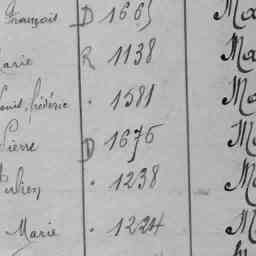 François D 1665 Ma
Marie R 1138 Ma
Louis, frédéric . 1581 Ma
Pierre D 1676 Ma
. 1238 Ma
Marie . 1224 M